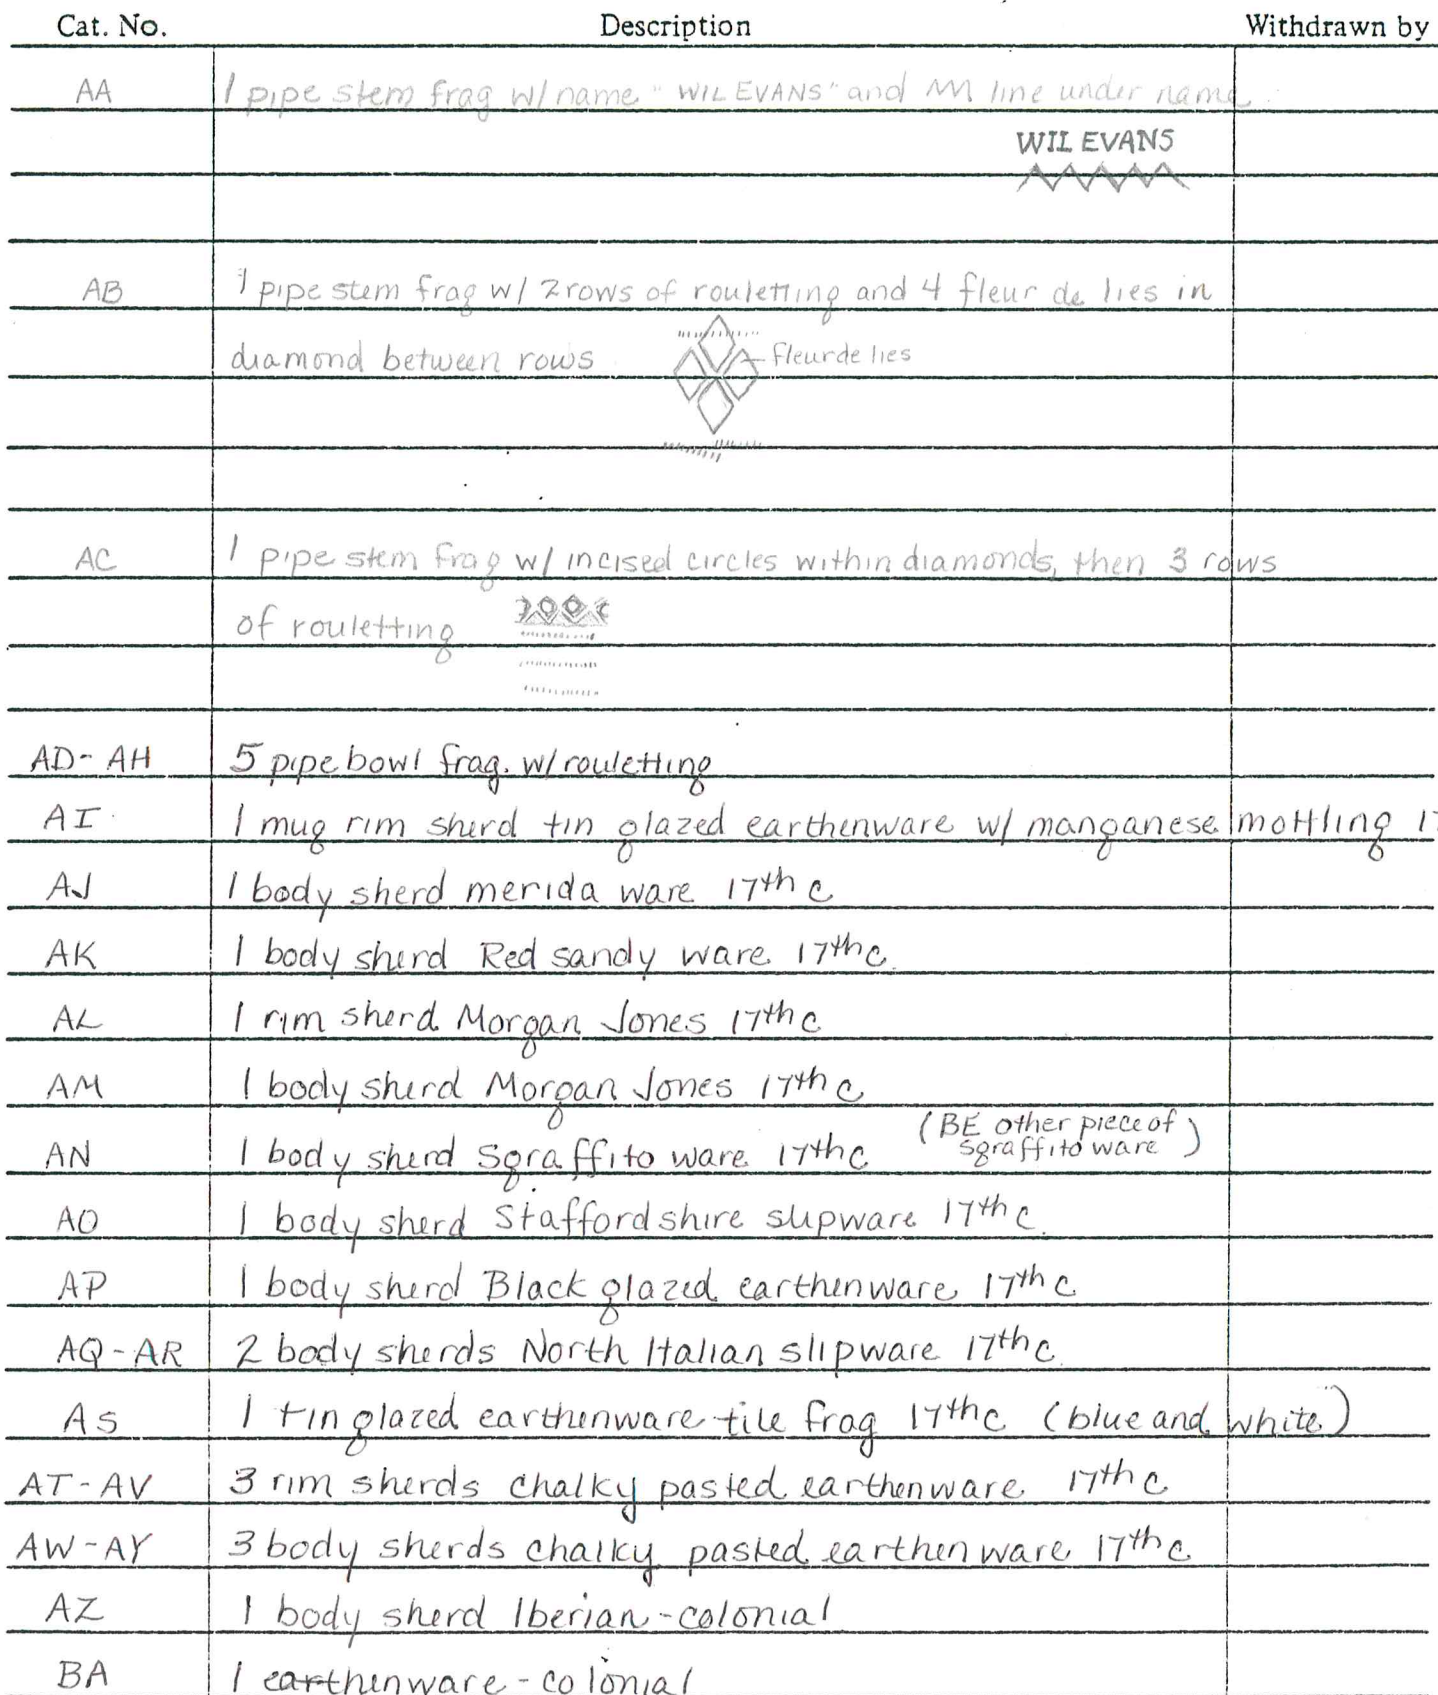 Cat. No. Description Withdrawn by
AA 1 pipe stem frag w/ name "WIL EVANS" and line under name
WIL EVANS
AB 1 pipe stem frag w/ 2 rows of rouletting and 4 fleur de lies in
diamond between rows fleur de lies
AC 1 pipe stem frag w/ incised circles within diamonds, then 3 rows
of rouletting
AD - AH 5 pipe bowl frag. w/ rouletting
AI 1 mug rim sherd tin glazed earthenware w/ manganese mottling
AJ 1 body sherd merida ware 17th c
AK 1 body sherd Red sandy ware 17th c.
AL 1 rim sherd Morgan Jones 17th c
AM 1 body sherd Morgan Jones 17th c
AN 1 body sherd Sgraffito ware 17th c (BE other piece of
sgraffito ware)
AO 1 body sherd Staffordshire slipware 17th c.
AP 1 body sherd Black glazed earthenware 17th c
AQ - AR 2 body sherds North Italian slipware 17th c
AS 1 tin glazed earthenware tile frag 17th c (blue and white)
AT - AV 3 rim sherds chalky pasted earthenware 17th c
AW - AY 3 body sherds chalky pasted earthenware 17th c
AZ 1 body sherd Iberian - colonial
BA 1 earthenware - colonial